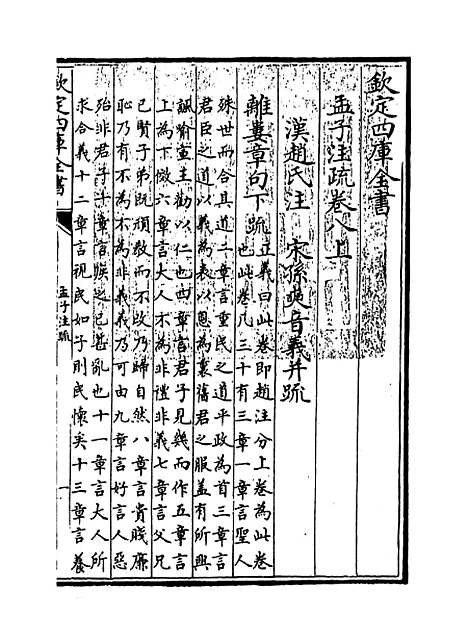 欽定四庫全書
孟子注疏卷八上
漢趙氏注　宋孫奭音義并疏
離婁章句下疏
正義曰此卷即趙注分上卷為此卷
也此卷凡三十有三章一章言聖人
殊世而合其道二章言重民之道平政為首三章言
君臣之道以義為表以恩為裏舊君之服蓋有所興
諷喻宣王勸以仁也四章言君子見幾而作五章言
上為下傚六章言大人不為非禮非義七章言父兄
已賢子弟既頑教而不改乃歸自然八章言貴賤廉
恥乃有不為不為非義義乃可由九章言好言人惡
殆非君子十章言疾之已甚亂也十一章言大人所
求合義十二章言視民如子則民懷矣十三章言養
欽定四庫全書
孟子注疏
一